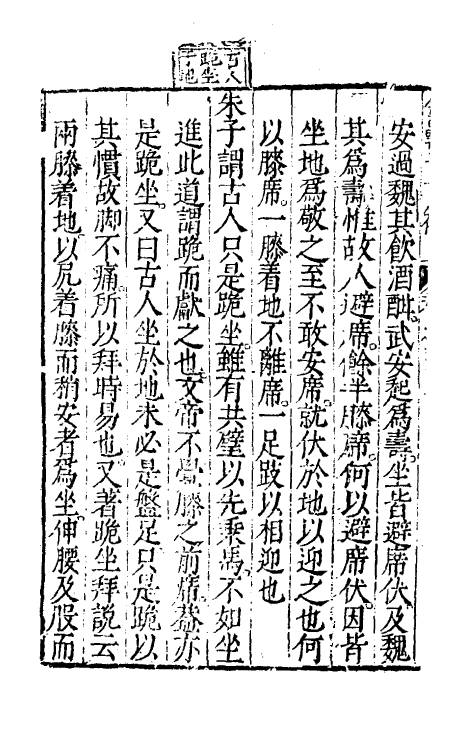 古人
跪坐
于地
安過魏其飲酒酣武安起爲壽坐皆避席伏及魏
其爲壽惟故人避席餘半膝席何以避席伏因皆
坐地爲敬之至不敢安席就伏於地以迎之也何
以膝席一膝着地不離席一足跂以相迎也
朱子謂古人只是跪坐雖有共璧以先乘馬不如坐
進此道謂跪而獻之也文帝不覺膝之前席蓋亦
是跪坐又曰古人坐於地未必是盤足只是跪以
其慣故脚不痛所以拜時易也又著跪坐拜說云
兩膝着地以尻着膝而稍安者爲坐伸腰及股而